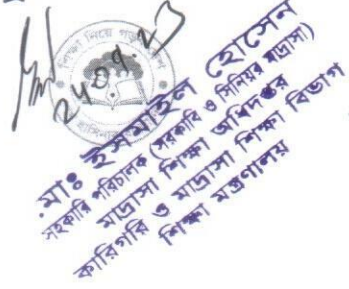 ২৪.০৭.২৩
শিক্ষা নিয়ে গড়ব দেশ
মোঃ ইসমাইল হোসেন
সহকারি পরিচালক (সরকারি ও সিনিয়র মাদ্রাসা)
মাদ্রাসা শিক্ষা অধিদপ্তর
কারিগরি ও মাদ্রাসা শিক্ষা বিভাগ
শিক্ষা মন্ত্রণালয়